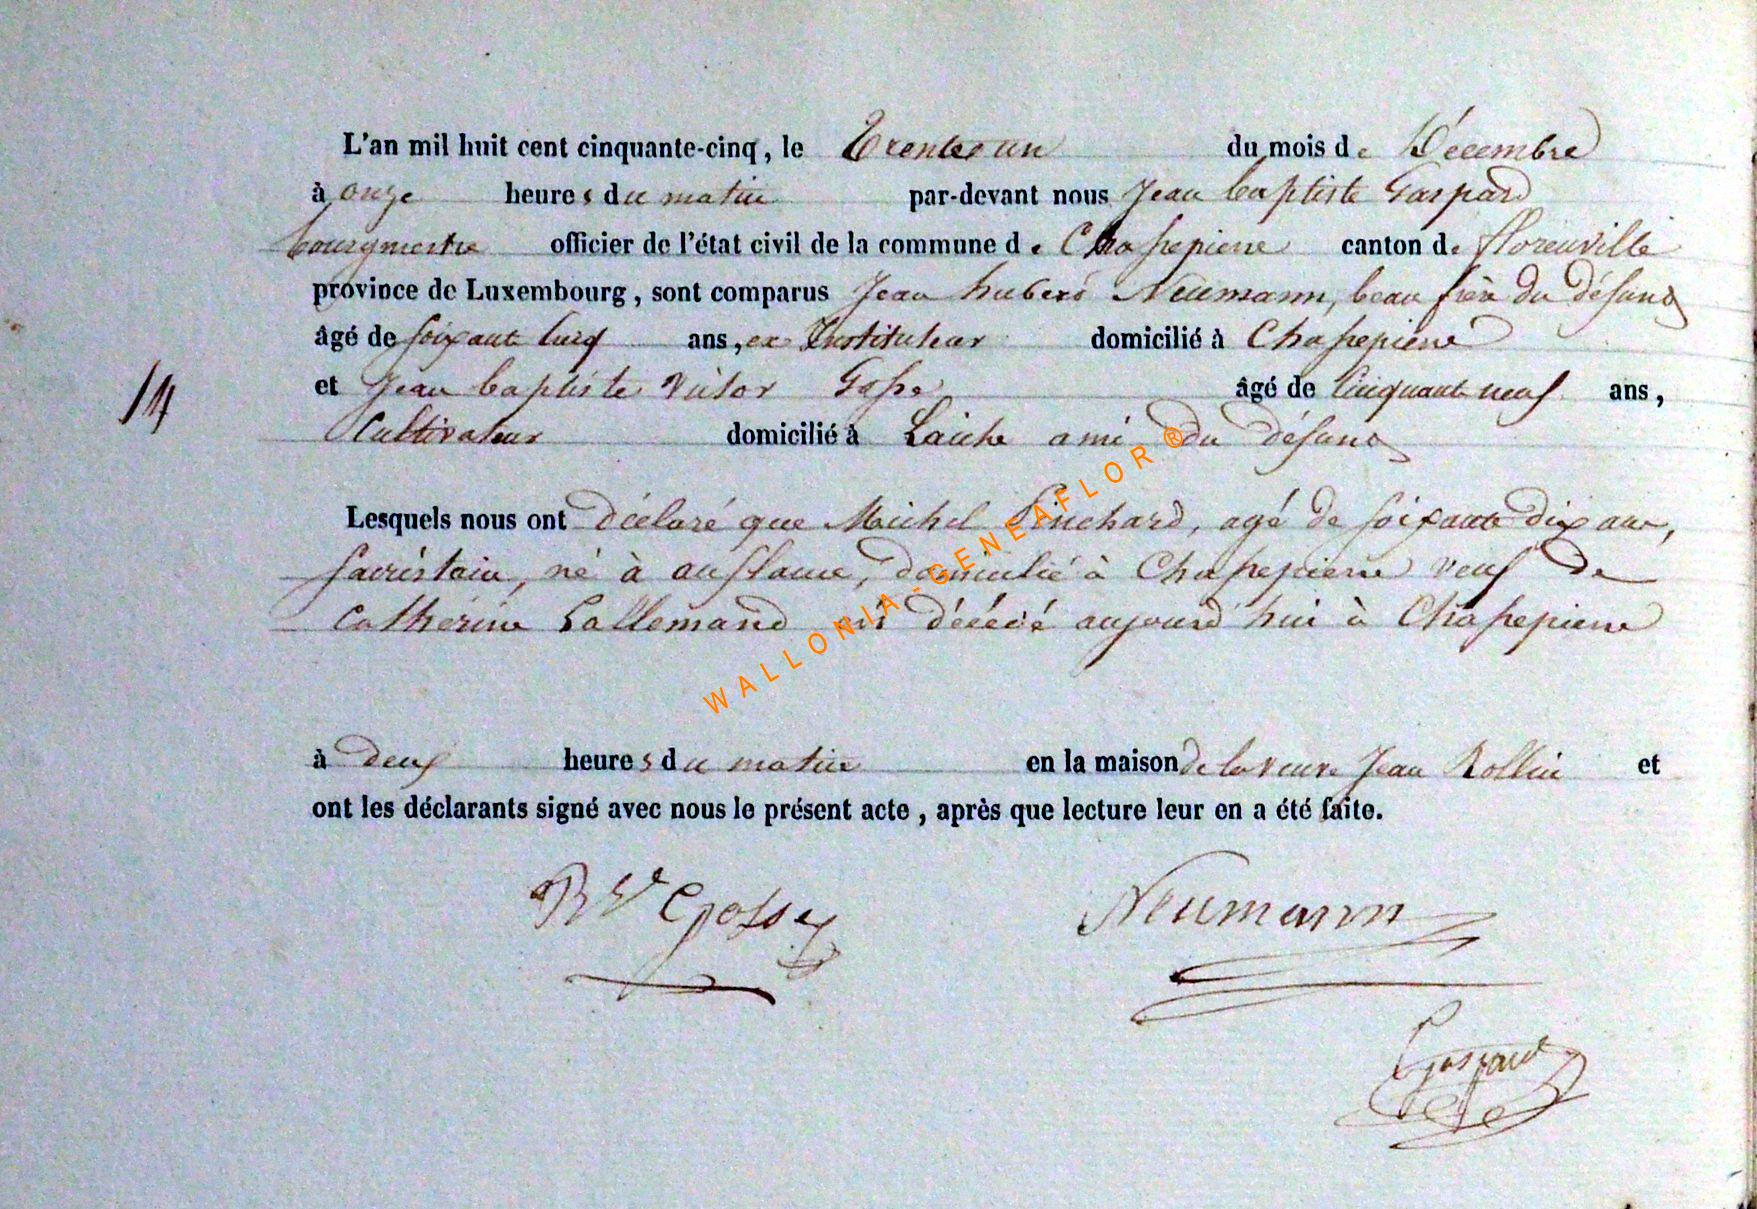 L'an mil huit cent cinquante-cinq, le Trente un du mois de Décembre
à onze heures du matin par-devant nous Jean baptiste Gaspard
bourgmestre officier de l'état civil de la commune de Chassepierre canton de florenville
province de Luxembourg, sont comparus Jean hubert Neumann, beau frère du défunt
âgé de soixante cinq ans, ex Instituteur domicilié à Chassepierre
14
et Jean baptiste Victor Gosse âgé de Cinquante neuf ans,
Cultivateur domicilié à Laiche ami du défunt
Lesquels nous ont déclaré que Michel Pinchard, agé de soixante dix ans,
sacristain, né à domicilié à Chassepierre veuf de
Catherine Lallemand est décédé aujourd'hui à Chassepierre
WALLONIA-GENEAFLOR®
à deux heures du matin en la maison de la veuve Jean Rollin et
ont les déclarants signé avec nous le présent acte, après que lecture leur en a été faite.
Gosse Neumann
Gaspard